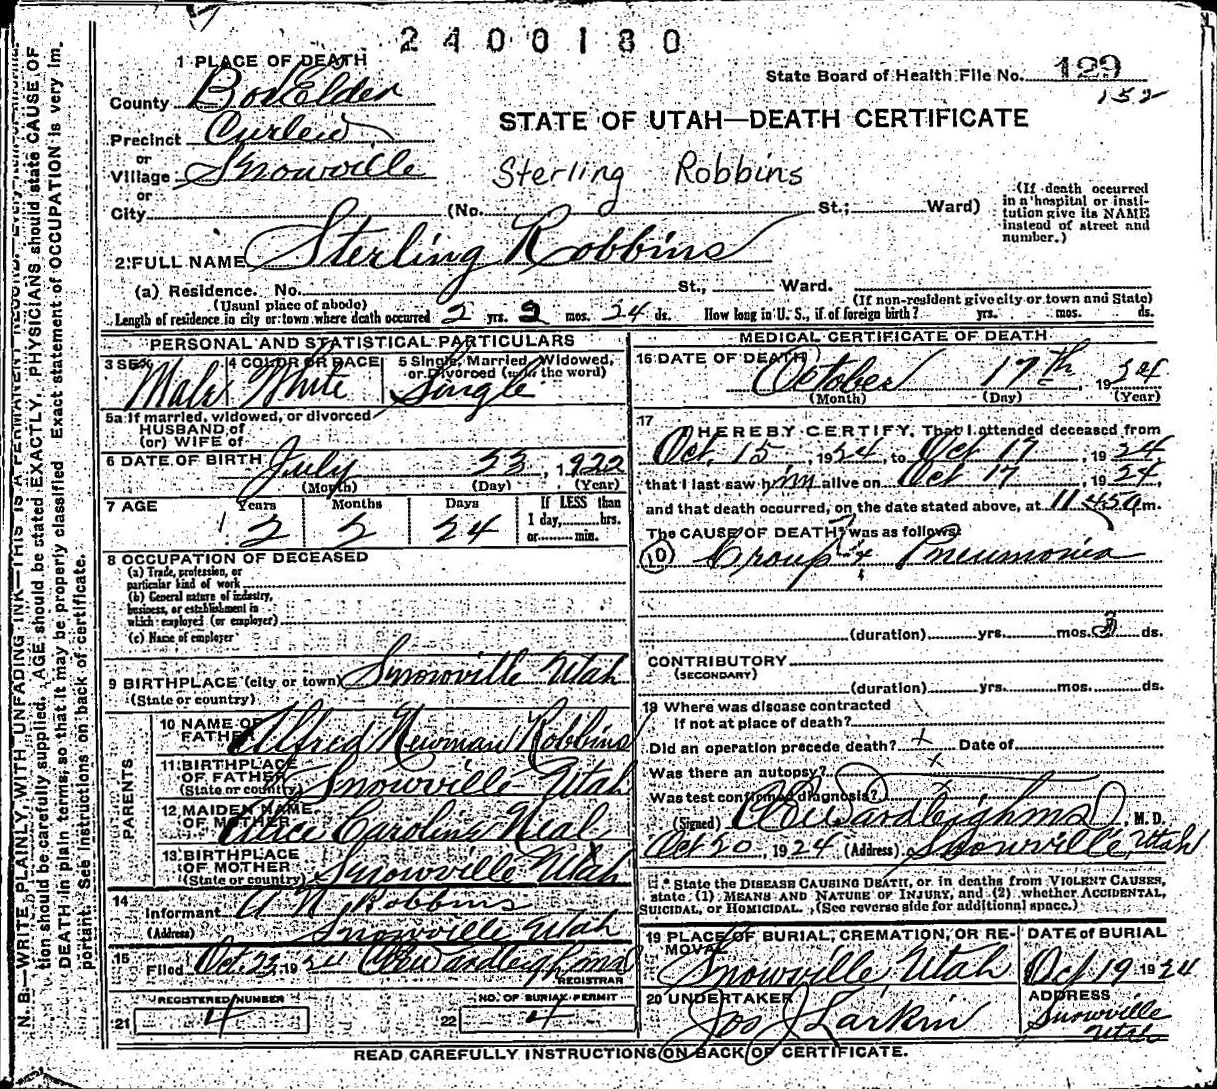 2400180
1 PLACE OF DEATH
State Board of Health File No. 129
152
County Box Elder
STATE OF UTAH—DEATH CERTIFICATE
Precinct Curlew
or
Village Snowville
Sterling Robbins
or
City (No. St.; Ward)
(If death occurred in a hospital or institution give its NAME instead of street and number.)
2 FULL NAME Sterling Robbins
(a) Residence. No. St., Ward.
(Usual place of abode) (If non-resident give city or town and State)
Length of residence in city or town where death occurred 2 yrs. 2 mos. 24 ds. How long in U. S., if of foreign birth? yrs. mos. ds.
PERSONAL AND STATISTICAL PARTICULARS
3 SEX Male
4 COLOR OR RACE White
5 Single, Married, Widowed, or Divorced (write the word) Single
5a If married, widowed, or divorced
HUSBAND of
(or) WIFE of
6 DATE OF BIRTH July 23, 1922
(Month) (Day) (Year)
7 AGE Years Months Days If LESS than
2 2 24 1 day, hrs.
or min.
8 OCCUPATION OF DECEASED
(a) Trade, profession, or
particular kind of work
(b) General nature of industry,
business, or establishment in
which employed (or employer)
(c) Name of employer
9 BIRTHPLACE (city or town) Snowville Utah
(State or country)
PARENTS
10 NAME OF FATHER Alfred Newman Robbins
11 BIRTHPLACE OF FATHER Snowville Utah
(State or country)
12 MAIDEN NAME OF MOTHER Alice Caroline Neal
13 BIRTHPLACE OF MOTHER Snowville Utah
(State or country)
14 Informant A N Robbins
(Address) Snowville Utah
15 Filed Oct. 22, 1924
REGISTRAR
21 REGISTERED NUMBER 4
22 NO. OF BURIAL PERMIT 4
MEDICAL CERTIFICATE OF DEATH
16 DATE OF DEATH October 17th, 1924
(Month) (Day) (Year)
17 I HEREBY CERTIFY, That I attended deceased from
Oct. 15, 1924, to Oct 17, 1924
that I last saw him alive on Oct 17, 1924,
and that death occurred, on the date stated above, at 11 45 a m.
The CAUSE OF DEATH was as follows:
10 Croup & Pneumonia
(duration) yrs. mos. 3 ds.
CONTRIBUTORY
(SECONDARY)
(duration) yrs. mos. ds.
18 Where was disease contracted
if not at place of death?
Did an operation precede death? Date of
Was there an autopsy?
Was test confirmed diagnosis?
(Signed) M. D.
Oct 20, 1924 (Address) Snowville, Utah
* State the DISEASE CAUSING DEATH, or in deaths from VIOLENT CAUSES,
state (1) MEANS AND NATURE OF INJURY, and (2) whether ACCIDENTAL,
SUICIDAL, or HOMICIDAL. (See reverse side for additional space.)
19 PLACE OF BURIAL, CREMATION, OR REMOVAL
Snowville, Utah
DATE OF BURIAL
Oct 19 1924
20 UNDERTAKER
Jos J Larkin
ADDRESS
Snowville
Utah
READ CAREFULLY INSTRUCTIONS ON BACK OF CERTIFICATE.
N. B.—WRITE PLAINLY, WITH UNFADING INK—THIS IS A PERMANENT RECORD.
tion should be carefully supplied. AGE should be stated EXACTLY. PHYSICIANS should state CAUSE OF
DEATH in plain terms, so that it may be properly classified. Exact statement of OCCUPATION is very im-
portant. See instructions on back of certificate.